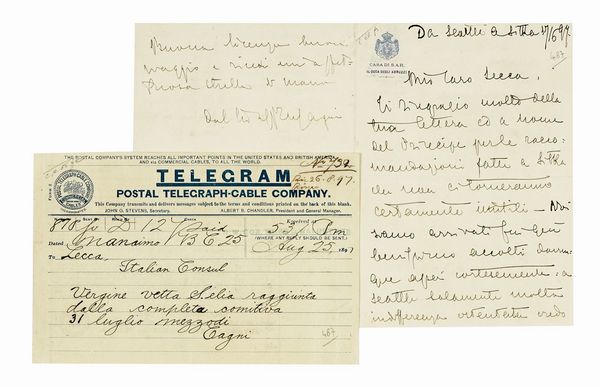 Da Seattle a Sitka 17/6 97.
467
CASA DI S.A.R.
IL DUCA DEGLI ABRUZZI
Mio Caro Lecca,
Ti ringrazio molto della
tua lettera ed a nome
del Principe per le racco-
mandazioni fatte a Sitka
che non ci torneranno
certamente inutili - Noi
siamo arrivati fin qui
benissimo accolti dovun-
que assai cortesemente: a
Seattle solamente molta
indifferenza ostentata credo
Buona licenza buon
viaggio e ricevi una affet-
tuosa stretta di mano
Dal tuo aff Cagni
THE POSTAL COMPANY'S SYSTEM REACHES ALL IMPORTANT POINTS IN THE UNITED STATES AND BRITISH AMERICA,
and via COMMERCIAL CABLES, TO ALL THE WORLD.
TELEGRAM
POSTAL TELEGRAPH-CABLE COMPANY.
This Company transmits and delivers messages subject to the terms and conditions printed on the back of this blank.
JOHN O. STEVENS, Secretary. ALBERT B. CHANDLER, President and General Manager.
26-8-97.
878 D 12 Paid 53 Pm
(WHERE ANY REPLY SHOULD BE SENT.)
Dated Nanaimo B C 25 Aug 25, 1897
To Lecca,
Italian Consul
Vergine vetta S. Elia raggiunta
dalla completa comitiva
31 luglio mezzodi
Cagni
467